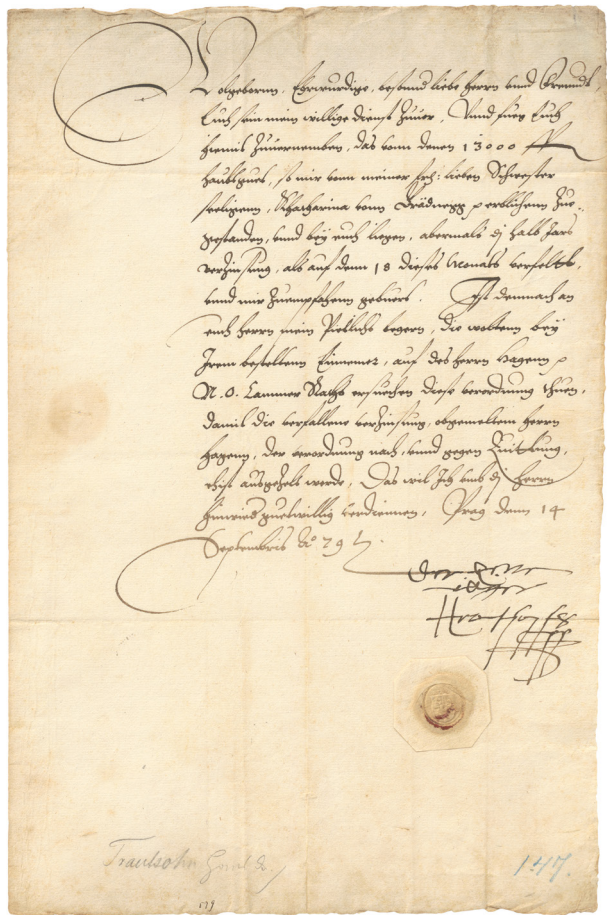 Wolgeborn, Ehrwürdige, besonnd liebe Herrn vnnd Freundt,
Euch sein mein willige dienst zuuor, Vnnd füeg Euch
hiemit zuuernemben, das vonn denen 13000 fl
haubtguet, so mir vonn meiner lieben Schwester
seeligenn, Khatharina vonn erblichenn zue-
gestanden, vnnd bey euch liegen, abermals halb Jars
verzinsung, als auf denn 18 dieses Monats verfelt,
vnnd mir zuempfahenn gebuert. Ist demnach an
euch herrn mein begern, die woltenn bey
Irem bestelltenn Einnemer, auf des herrn Hagenn
N. O. Cammer Raths ersuchen diese verordnung thuen,
damit die verfallene verzinsung, obgemeltem herrn
Hagenn, der verordnung nach, vnnd gegen Quittung,
ausgezelt werde, Das wil Ich vmb die Herrn
hinwider guetwillig verdiennen, Prag denn 14
Septembris Ao 79
Trautsohn
147.
179